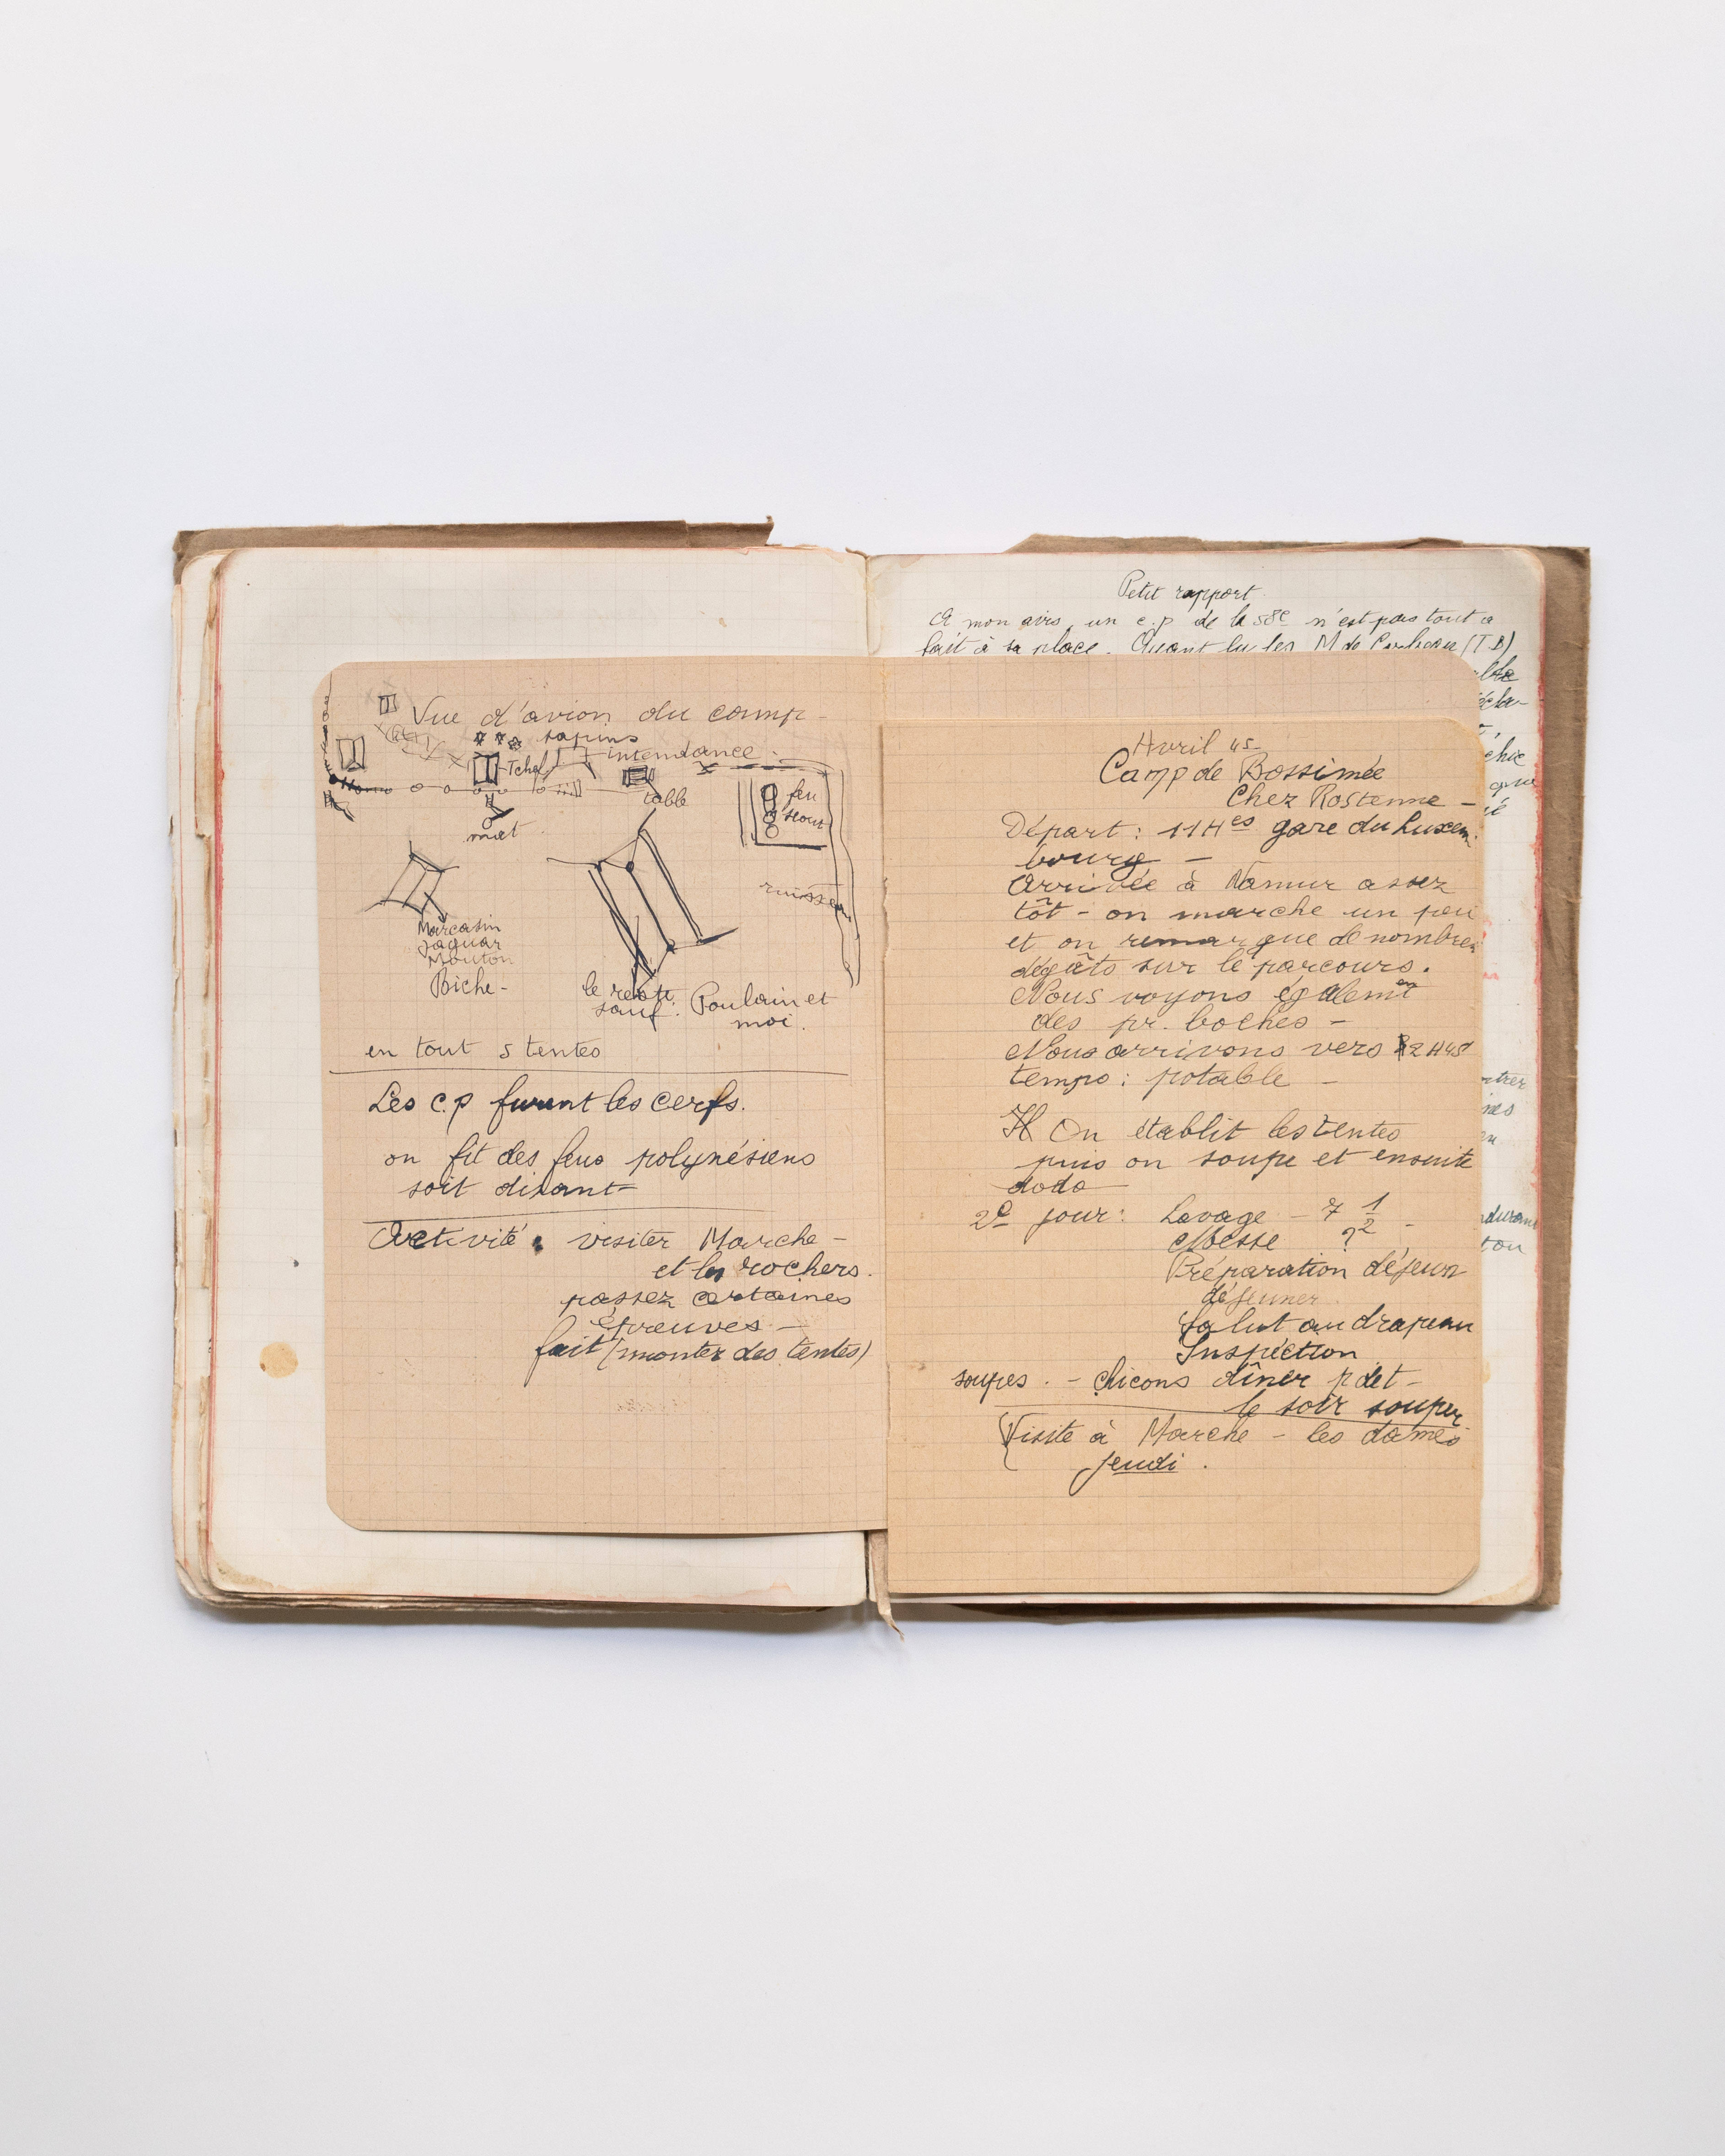 Vue d'avion du camp -
sapins
intendance.
Tchef
table
mât
feu
scout
ruisseau
Marcasin
jaguar
Mouton
Biche -
le reste
sauf. Poulain et
moi.
en tout 5 tentes
Les c.p furent les cerfs.
on fit des feux polynésiens
soit disant
Activité : visiter Marche -
et les rochers.
passez certaines
épreuves -
fait (monter des tentes)
Petit rapport
A mon avis, un c.p de la 58e n'est pas tout a
fait à sa place. Quant lu les M de Corbeau (T.B)
Avril 45-
Camp de Bossimée
Chez Rostenne -
Départ : 11Hes gare du Luxem
bourg -
Arrivée à Namur assez
tôt - on marche un peu
et on remarque de nombreu
dégâts sur le parcours.
Nous voyons égalemt
des pr. boches -
Nous arrivons vers 2H45
temps : potable -
On établit les tentes
puis on soupe et ensuite
dodo
2e jour : Lavage - 7 1/2 -
Messe ?
Préparation déjeun
déjeuner
Salut au drapeau
Inspéction
soupes. - chicons dîner p det -
le soir souper
Visite à Marche - les dames
jeudi.